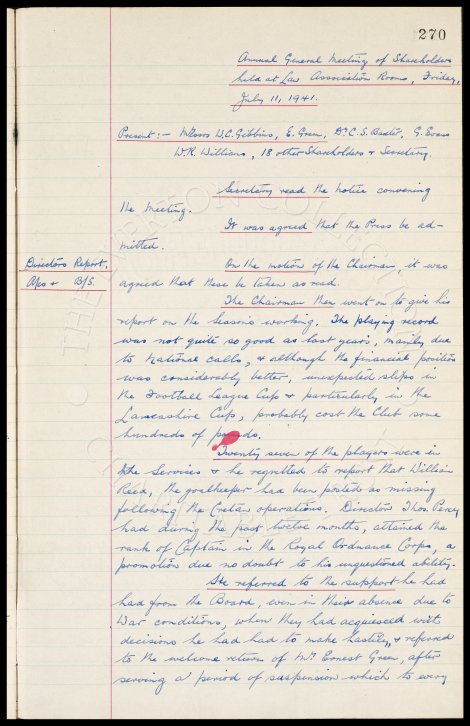 270
Annual General Meeting of Shareholders
held at Law Association Rooms, Friday,
July 11, 1941.
Present:- Messrs W.C. Gibbins, E. Green, Dr C.S. Baxter, G. Evans
W.R. Williams, 18 other Shareholders & Secretary.
Secretary read the notice convening
the meeting.
It was agreed that the Press be ad-
mitted.
Directors Report, On the motion of the Chairman, it was
A/cs & B/S. agreed that these be taken as read.
The Chairman then went on to give his
report on the Seasons working. The playing record
was not quite so good as last years, mainly due
to National calls, & although the financial position
was considerably better, unexpected slips in
the Football League Cup & particularly in the
Lancashire Cup, probably cost the Club some
hundreds of pounds.
Twenty seven of the players were in
the Services & he regretted to report that William
Reed, the goalkeeper had been posted as missing
following the Cretan operations. Director Thos. Percy
had during the past twelve months, attained the
rank of Captain in the Royal Ordnance Corps, a
promotion due no doubt to his unquestioned ability.
He referred to the support he had
had from the Board, even in their absence due to
War conditions, when they had acquiesced with
decisions he had had to make hastily, & referred
to the welcome return of Mr Ernest Green, after
serving a period of suspension which to every
THE EVERTON COLLECTION